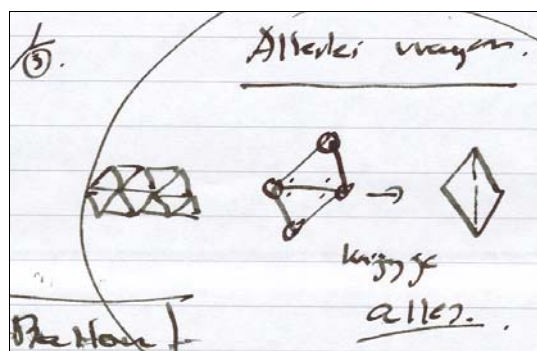 1/3.
Allerlei vragen.
krijg je
alles.